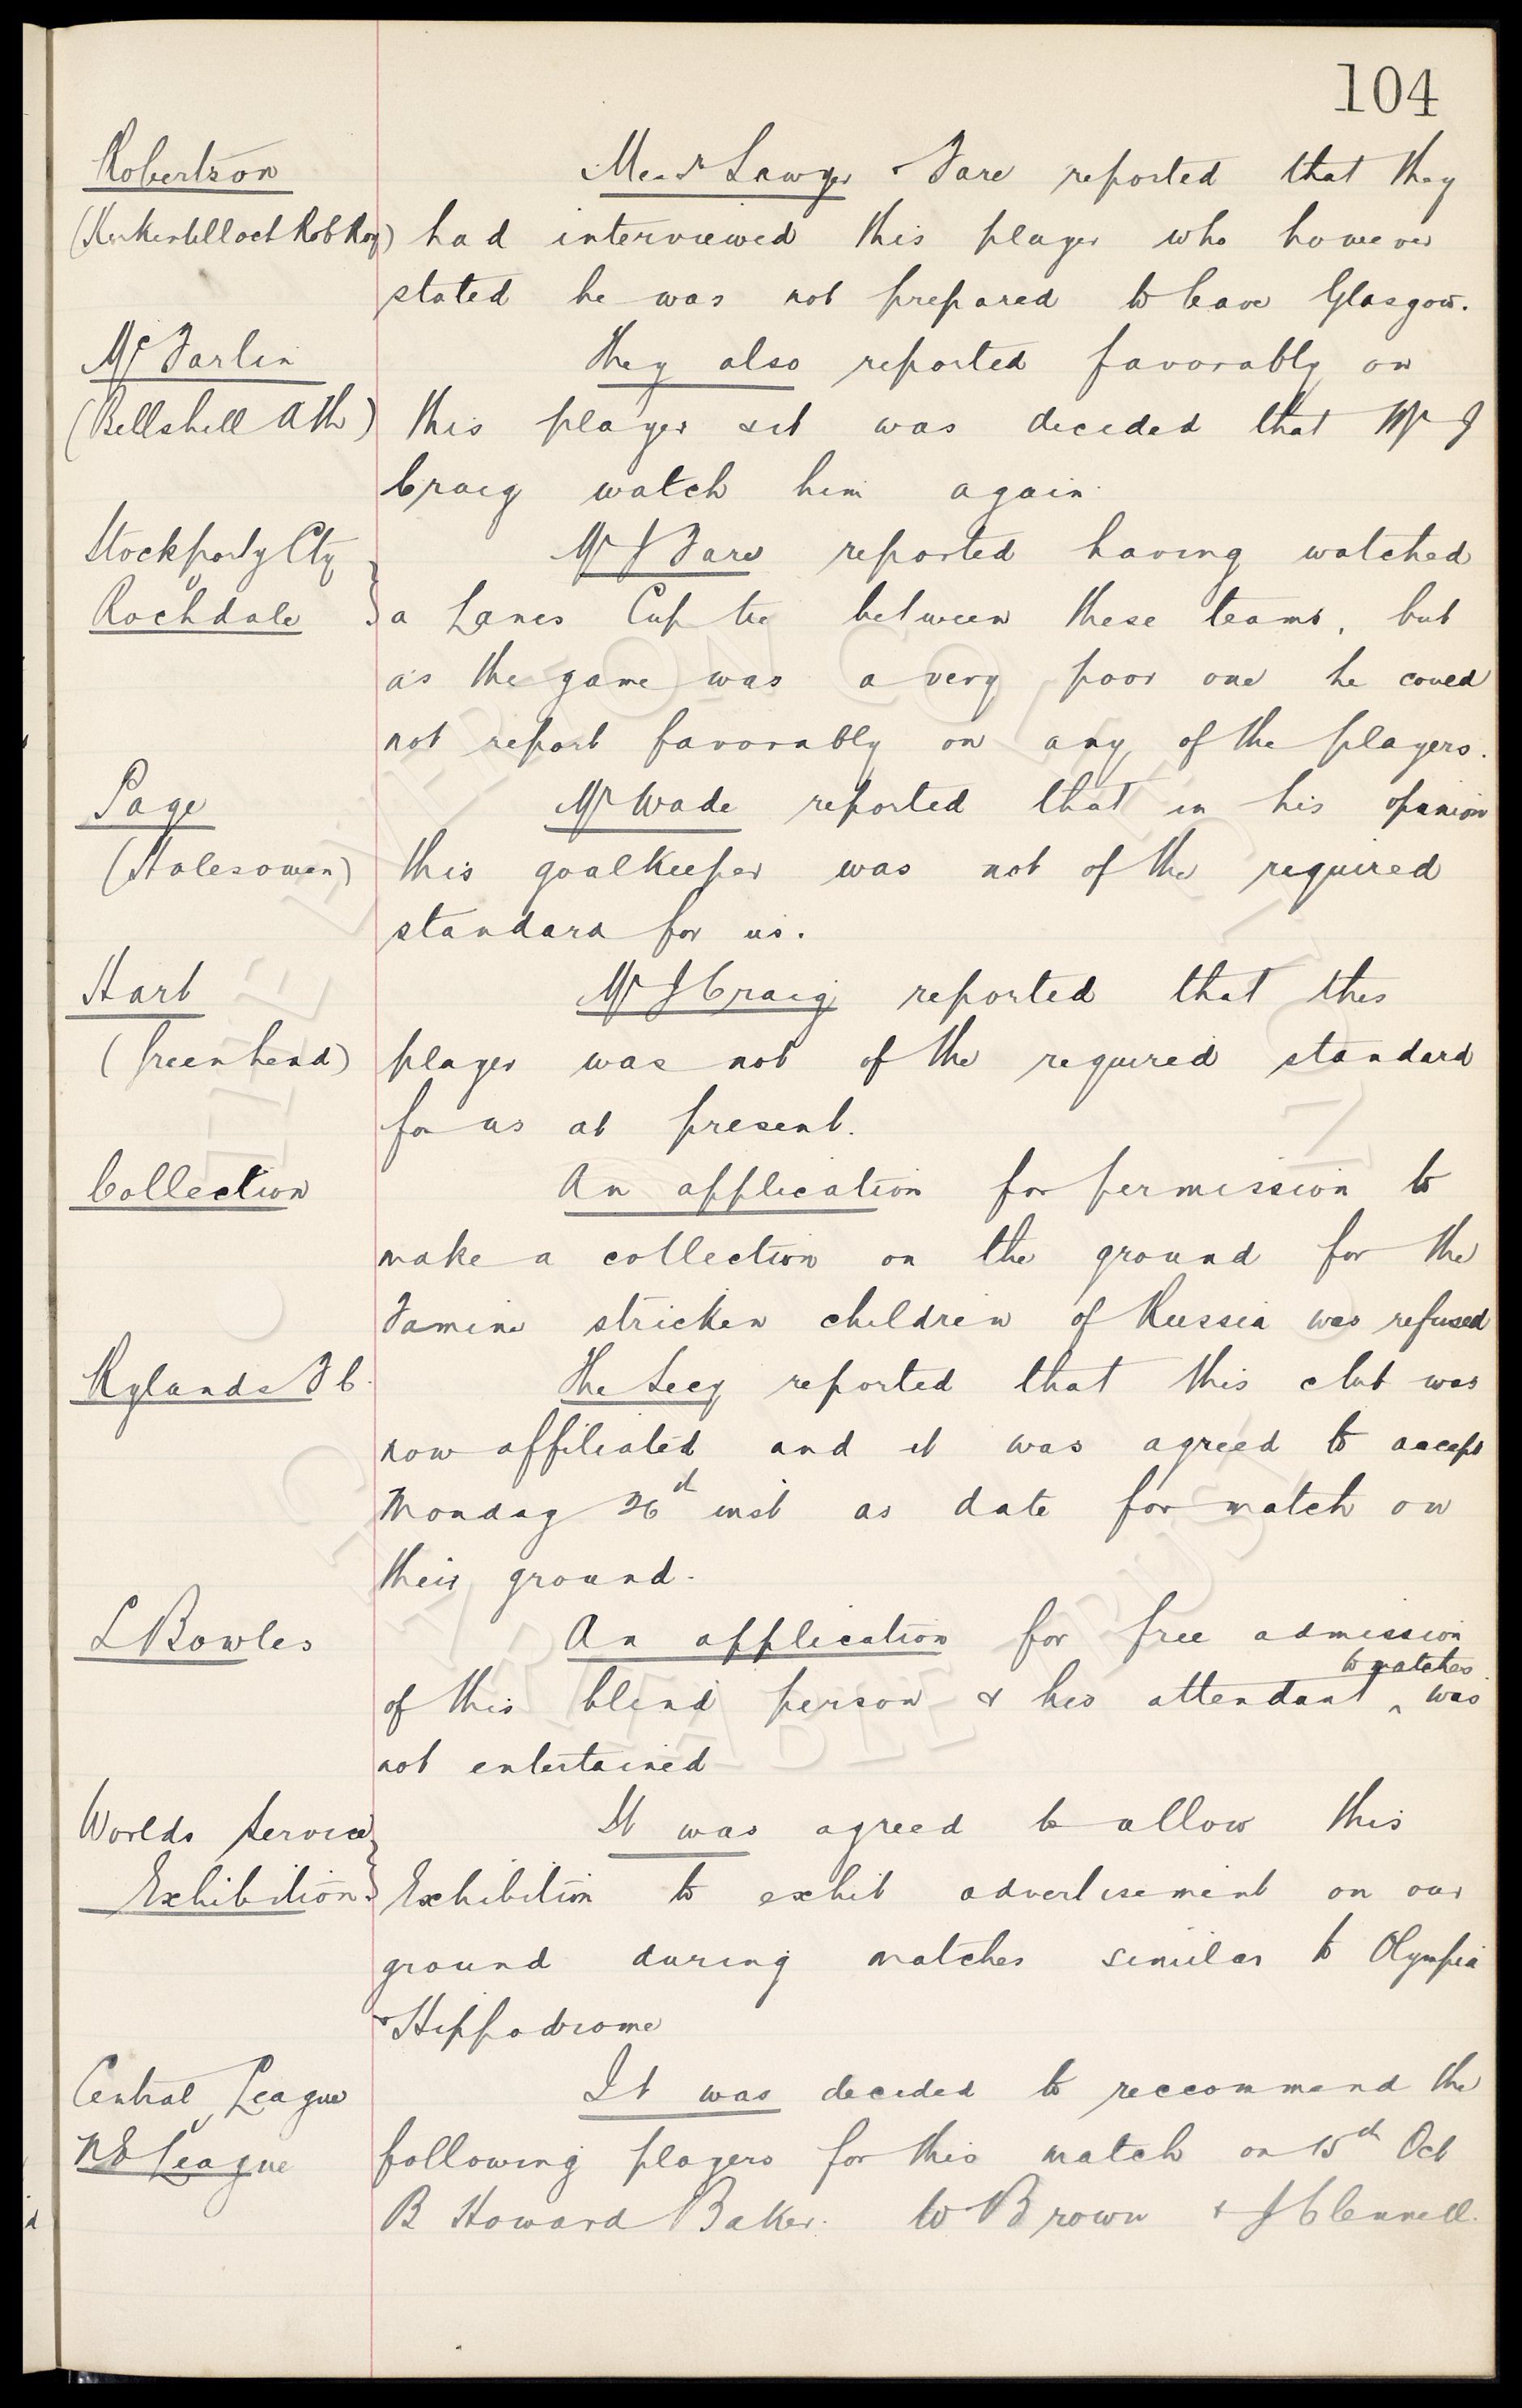 104
Robertson
(Kirkintilloch Rob Roy)
Messrs Sawyer & Fare reported that they
had interviewed this player who however
stated he was not prepared to leave Glasgow.
McFarlin
(Bellshill Ath)
They also reported favorably on
this player & it was decided that Mr J
Craig watch him again
Stockport v Cty
Rochdale
Mr J Fare reported having watched
a Lancs Cup tie between these teams, but
as the game was a very poor one he could
not report favorably on any of the players.
Page
(Halesowen)
Mr Wade reported that in his opinion
this goalkeeper was not of the required
standard for us.
Hart
(Greenhead)
Mr J Craig reported that this
player was not of the required standard
for us at present.
Collection
An application for permission to
make a collection on the ground for the
Famine stricken children of Russia was refused
Rylands F C.
The Secy reported that this club was
now affiliated and it was agreed to accept
Monday 26th inst as date for match on
their ground.
L Bowles
An application for free admission
of this blind person & his attendant ^ to matches was
not entertained
Worlds Service
Exhibition
It was agreed to allow this
Exhibition to exhit advertisement on our
ground during matches similar to Olympia
& Hippodrome
Central League
v
N E League
It was decided to reccommend the
following players for this match on 15th Oct
B Howard Baker. W Brown & J Clennell.